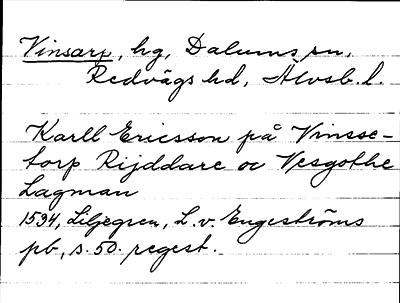 Vinsarp, hg, Dalums sn,
Redvägs hd, Älvsb. l.
Karll Ericsson på Vinsse-
torp Rijddare oc Vesgothe
Lagman
1534, Liljegren, L. v. Engeströms
pb, s. 50. regest.